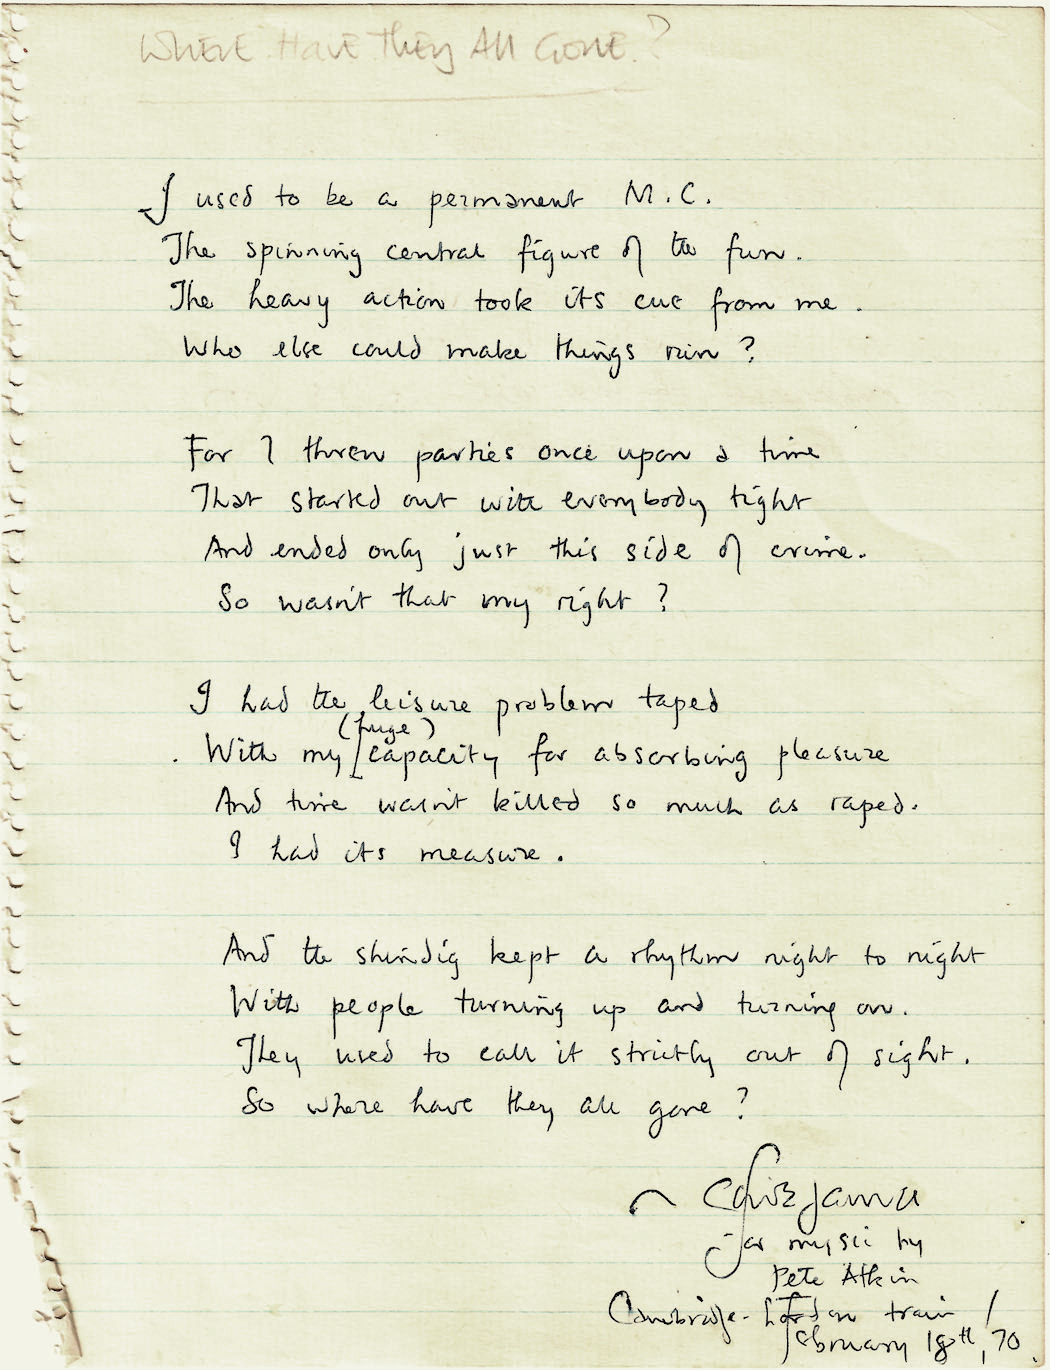 WHERE HAVE THEY All GONE?
I used to be a permanent M.C.
The spinning central figure of the fun.
The heavy action took its cue from me.
Who else could make things run?
For I threw parties once upon a time
That started out with everybody tight
And ended only just this side of crime.
So wasn't that my right?
I had the leisure problem taped
(huge)
With my [capacity for absorbing pleasure
And time wasn't killed so much as raped.
I had its measure.
And the shindig kept a rhythm night to night
With people turning up and turning on.
They used to call it strictly out of sight.
So where have they all gone?
Clive James
for music by
Pete Atkin
Cambridge-London train /
February 18th, 70